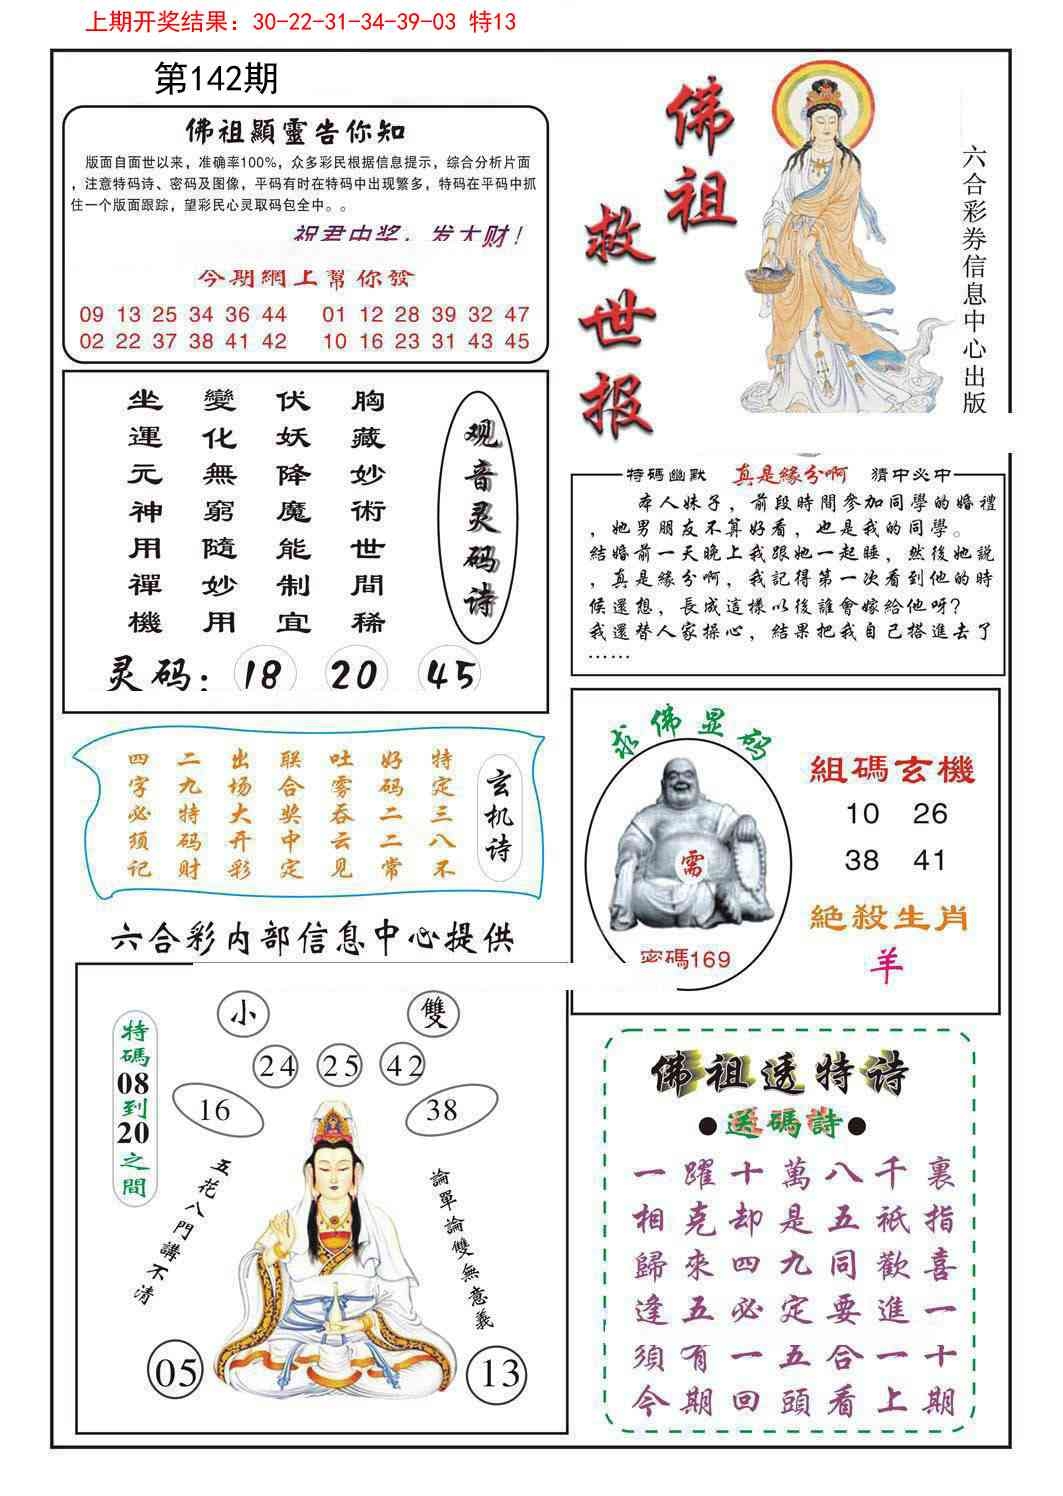 上期开奖结果：30-22-31-34-39-03 特13
第142期
佛祖顯靈告你知
版面自面世以来，准确率100%，众多彩民根据信息提示，综合分析片面
，注意特码诗、密码及图像，平码有时在特码中出现繁多，特码在平码中抓
住一个版面跟踪，望彩民心灵取码包全中。。
祝君中奖，发大财！
今期網上幫你發
09 13 25 34 36 44 01 12 28 39 32 47
02 22 37 38 41 42 10 16 23 31 43 45
佛祖
救世报
六合彩券信息中心出版
坐 變 伏 胸
運 化 妖 藏
元 無 降 妙
神 窮 魔 術
用 隨 能 世
禪 妙 制 間
機 用 宜 稀
观音灵码诗
灵码：18 20 45
特碼幽默 真是緣分啊 猜中必中
本人妹子，前段時間參加同學的婚禮
，她男朋友不算好看，也是我的同學。
結婚前一天晚上我跟她一起睡，然後她説
，真是緣分啊，我記得第一次看到他的時
候還想，長成這樣以後誰會嫁給他呀？
我還替人家操心，結果把我自己搭進去了
……
四 二 出 联 吐 好 特
字 九 场 合 雾 码 定
必 特 大 奖 吞 二 三
须 码 开 中 云 二 八
记 财 彩 定 见 常 不
玄机诗
求佛显码
需
密碼169
組碼玄機
10 26
38 41
絶殺生肖
羊
六合彩内部信息中心提供
特碼08到20之間
小 雙
24 25 42
16 38
五花八門講不清
論單論雙無意義
05 13
佛祖透特诗
●送碼詩●
一躍十萬八千裏
相克却是五祇指
歸來四九同歡喜
逢五必定要進一
須有一五合一十
今期回頭看上期